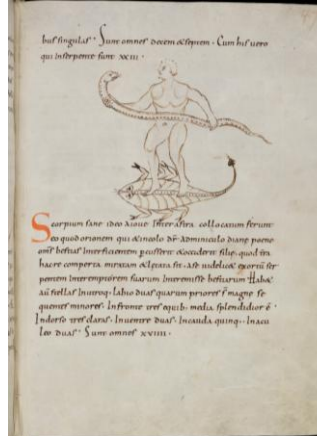 bus singulas. Sunt omnes decem & septem. Cum his uero
qui in serpente sunt XXIII.
Scorpium sane ideo a ioue Inter astra collocatum ferunt
eo quod orionem qui & incolo dr adminiculo diane poeno
oms bestias Interficientem pcusserit & occiderit
hac re comperta miratam &
pentem Interemptorem suarum Interemisse bestiarum Hab&
aũ stellas In labio duas quarum priores magne se
quentes minores. In fronte tres equib; media splendidior ē
In dorso tres claras. In uentre duas. In cauda quinq;. In acu
leo duas. Sunt omnes XVIIII.